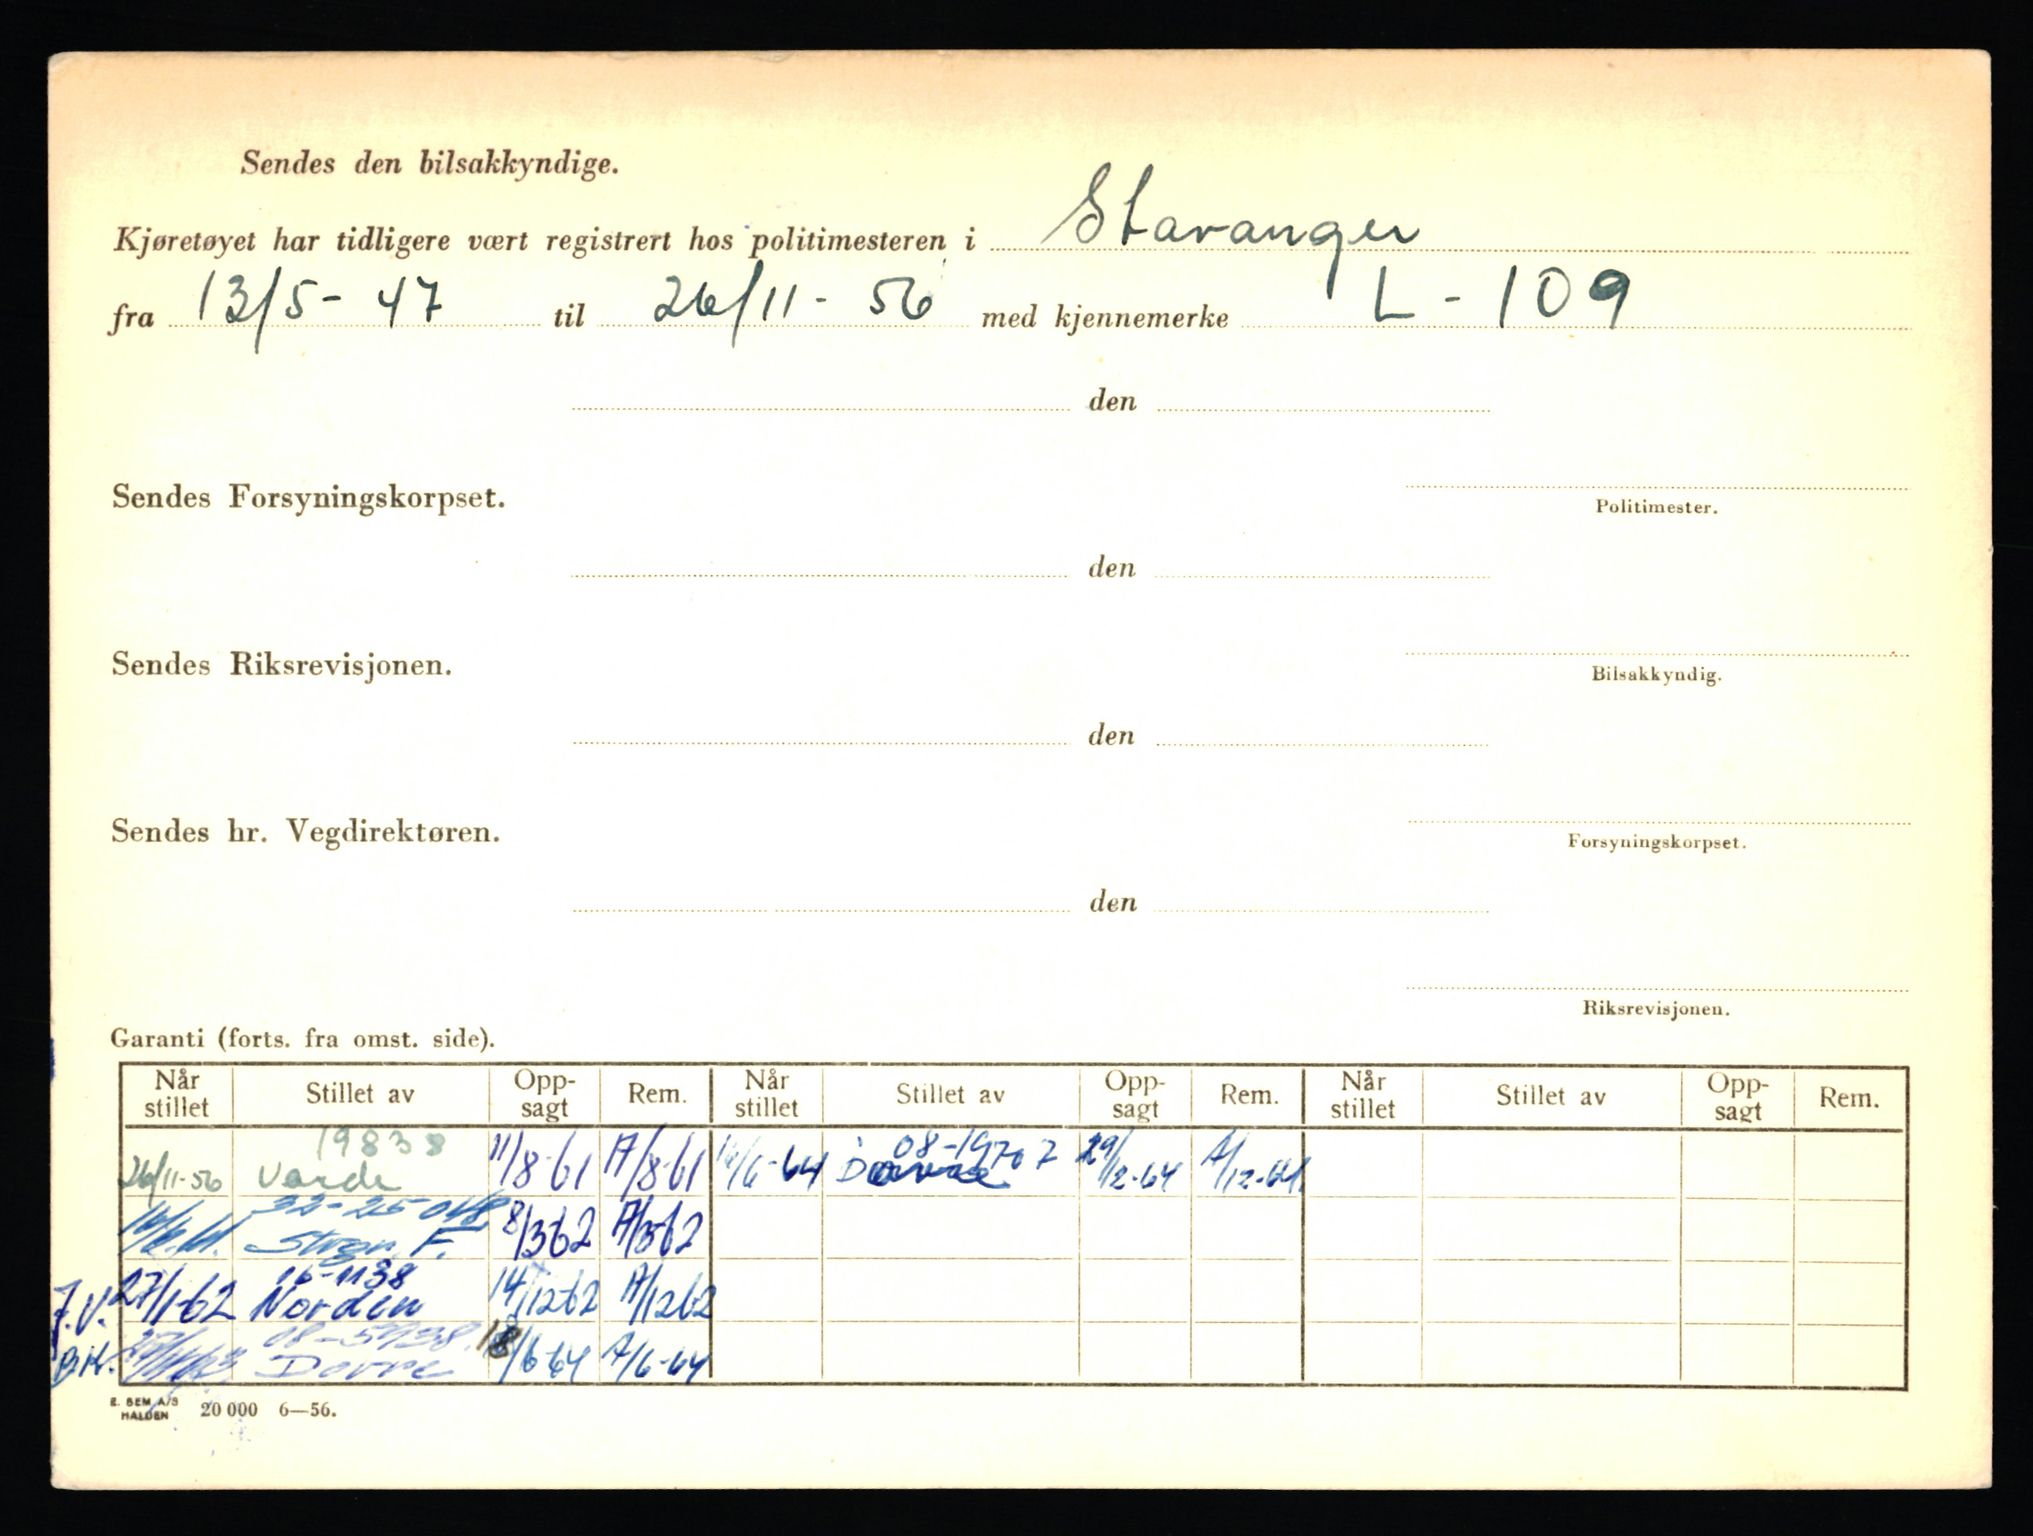 Sendes den bilsakkyndige.
Kjøretøyet har tidligere vært registrert hos politimesteren i Stavanger
fra 13/5-47 til 26/11-56 med kjennemerke L-109
den
Sendes Forsyningskorpset.
Politimester.
den
Sendes Riksrevisjonen.
Bilsakkyndig.
den
Sendes hr. Vegdirektøren.
Forsyningskorpset.
den
Riksrevisjonen.
Garanti (forts. fra omst. side).
Når stillet Stillet av Opp-sagt Rem. Når stillet Stillet av Opp-sagt Rem. Når stillet Stillet av Opp-sagt Rem.
19838 08-19707
26/11-56 Varde 11/8-61 A/8-61 /6-64 Dovre 29/12-64 A/12-64
32-25048
Stvgr. F. 8/3 62 A/3 62
16-1138
J.V. 27/1-62 Norden 14/12 62 A/12 62
08-
B.K. Dovre 18/6 64 A/6-64
E. SEM A/S
HALDEN 20 000 6—56.